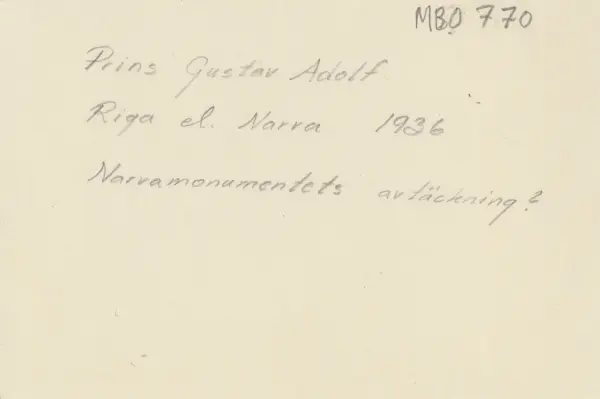 MBO 770
Prins Gustav Adolf
Riga el. Narva 1936
Narvamonumentets avtäckning?